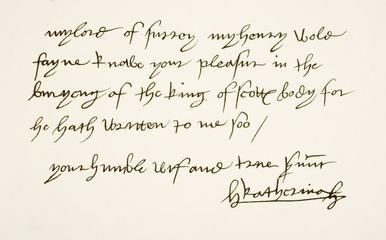 mylord of surrey myhenry wold
fayne knowe your pleasur in the
buryeng of the king of scotts body for
he hath wrytten to me soo /
your humble wif and trew s'unt
katherina